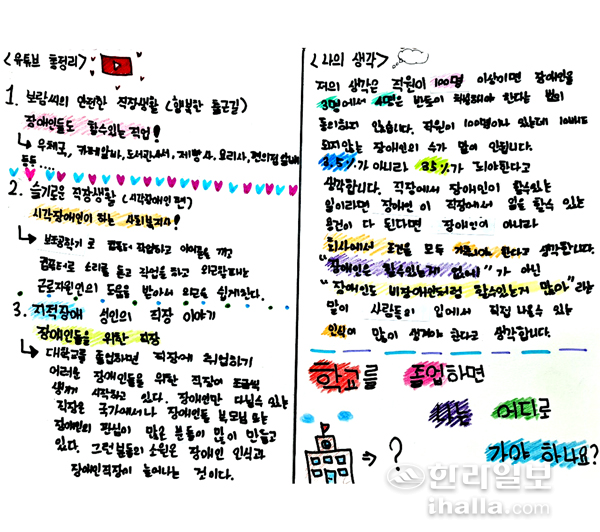 <유튜브 총정리>
1. 보람씨의 안전한 직장생활 (행복한 출근길)
장애인들도 할수있는 직업!
↳ 우체국, 카페알바, 도서관사서, 제빵사, 요리사, 편의점 알바
등등....
2. 슬기로운 직장생활 (시각장애인 편)
시각장애인이 하는 사회복지사!
↳ 보조공학기로 컴퓨터 작업하고 이어폰을 끼고
컴퓨터로 소리를 듣고 작업을 하고 외근할때는
근로지원인의 도움을 받아서 외근을 쉽게한다.
3. 지적장애 성인의 직장 이야기
장애인들을 위한 직장
↳ 대학교를 졸업하면 직장에 취업하기
어려운 장애인들을 위한 직장이 조금씩
생겨 시작하고 있다. 장애인만 다닐수 있는
직장은 국가에서나 장애인들 부모님 또는
장애인의 관심이 많은 분들이 많이 만들고
있다. 그런 분들의 소원은 장애인 인식과
장애인직장이 늘어나는 것이다.
<나의 생각>
저의 생각은 직원이 100명 이상이면 장애인을
3명에서 4명은 반드시 채용해야 한다는 법이
동의하지 않습니다. 직원이 100명이나 있는데 10%도
되지않는 장애인의 수가 말이 안됩니다.
3.5%가 아니라 35%가 되야한다고
생각합니다. 직장에서 장애인이 할수있는
일이라면 장애인 이 직장에서 일을 할수 있는
조건이 다 된다면 장애인이 아니라
회사에서 조건을 모두 갖추어야 한다고 생각합니다.
"장애인은 할수있는게 없어" 가 아닌
"장애인도 비장애인처럼 할수있는게 많아"라는
말이 사람들의 입에서 직접 나올수 있는
인식이 많이 생겨야 한다고 생각합니다.
학교를 졸업하면
나는 어디로
⇒ ? 가야 하나요?
한라일보
ihalla.com